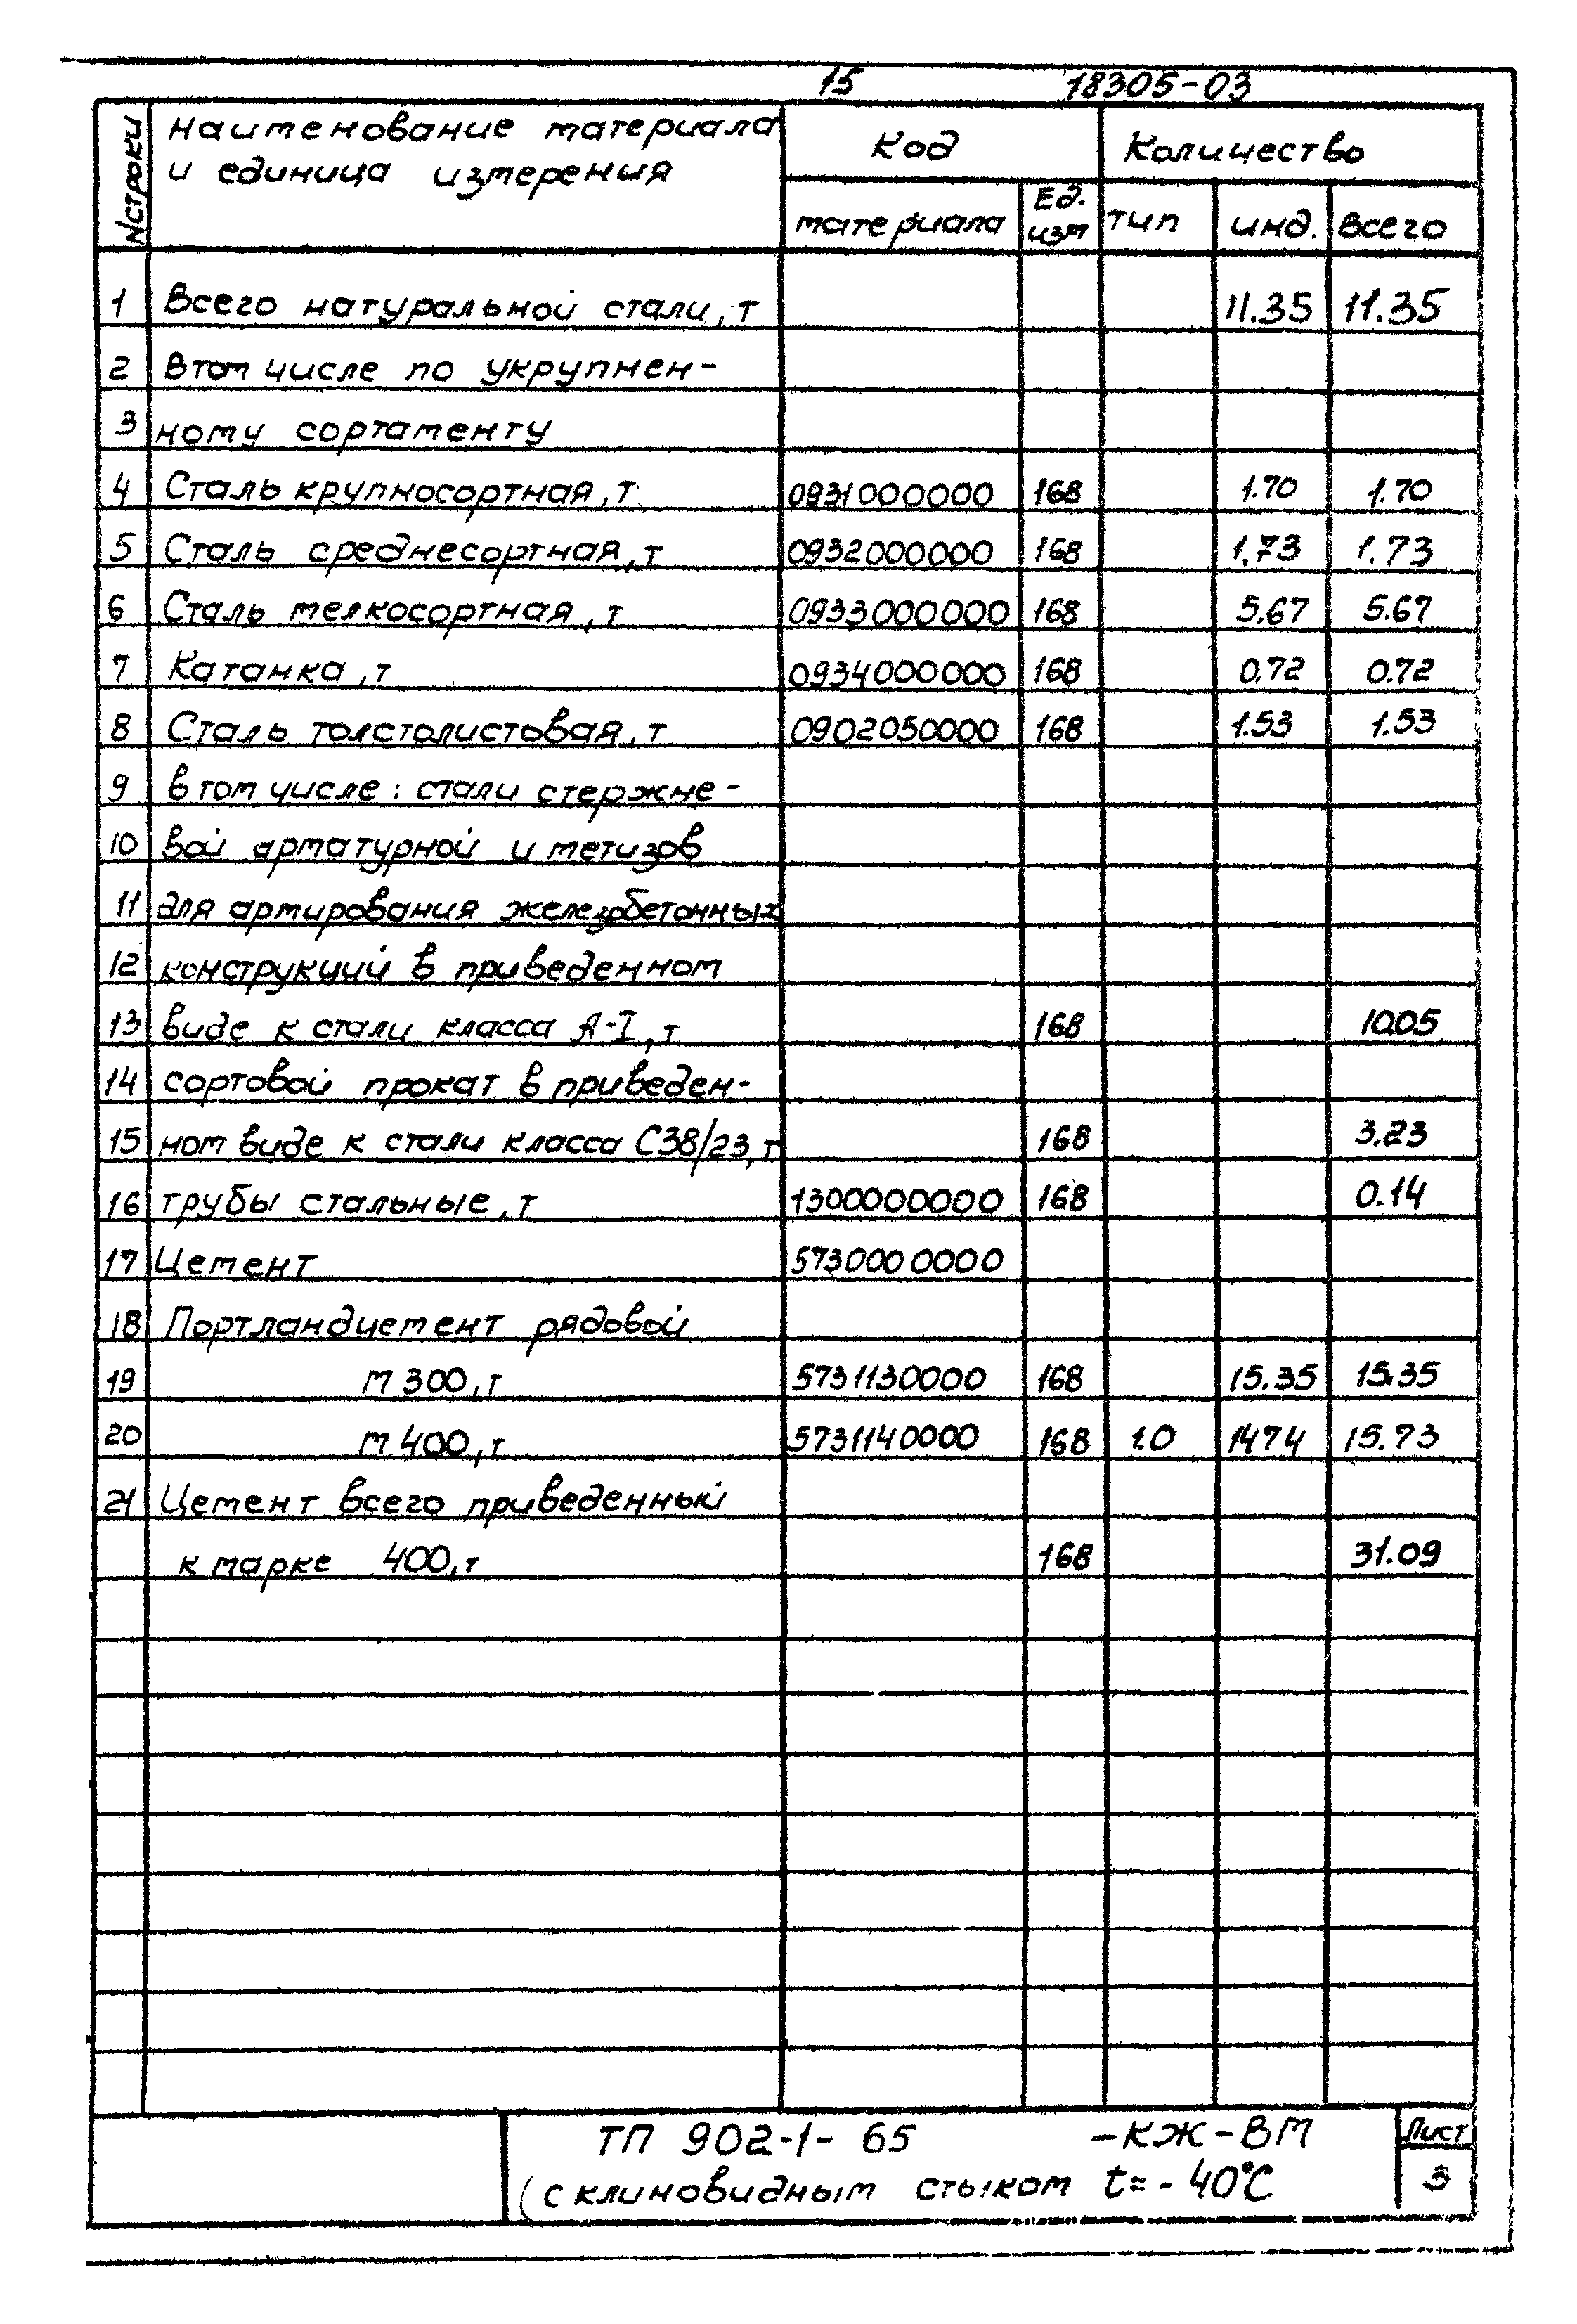 15 18305-03
№ строки
Наименование материала
и единица измерения
Код
Количество
материала
Ед.
изм
тип
инд.
Всего
1 Всего натуральной стали, т 11.35 11.35
2 В том числе по укрупнен-
3 ному сортаменту
4 Сталь крупносортная, т 0931000000 168 1.70 1.70
5 Сталь среднесортная, т 0932000000 168 1.73 1.73
6 Сталь мелкосортная, т 0933000000 168 5.67 5.67
7 Катанка, т 0934000000 168 0.72 0.72
8 Сталь толстолистовая, т 0902050000 168 1.53 1.53
9 в том числе: стали стержне-
10 вой арматурной и метизов
11 для армирования железобетонных
12 конструкций в приведенном
13 виде к стали класса А-I, т 168 10.05
14 сортовой прокат в приведен-
15 ном виде к стали класса С38/23, т 168 3.23
16 трубы стальные, т 1300000000 168 0.14
17 Цемент 5730000000
18 Портландцемент рядовой
19 м 300, т 5731130000 168 15.35 15.35
20 м 400, т 5731140000 168 1.0 1474 15.73
21 Цемент всего приведенный
к марке 400, т 168 31.09
ТП 902-1-65 -КЖ-ВМ
Лист
(с клиновидным стыком t=-40°С
3